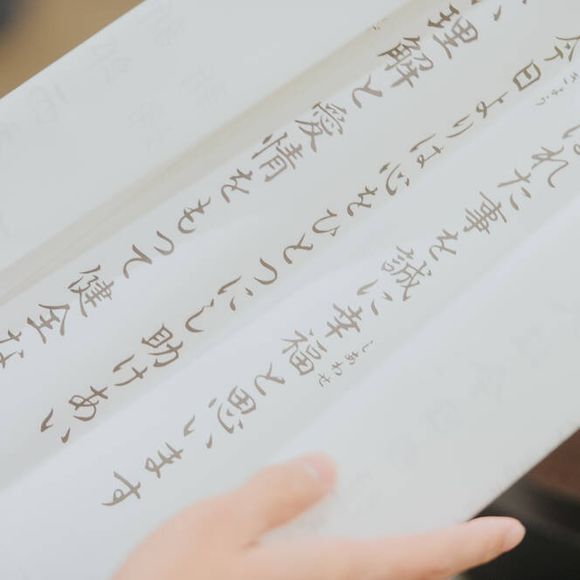 れた事を誠に幸福と思います
しあわせ
今日よりは心をひとつにし 助けあい
きょう
い理解と愛情をもって健全な